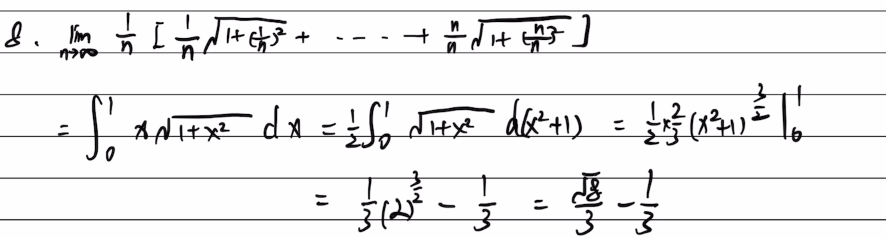 8. lim n→∞ 1/n [ 1/n √(1+(1/n)²) + ---- + n/n √(1+(n/n)²) ]
= ∫₀¹ x√(1+x²) dx = 1/2 ∫₀¹ √(1+x²) d(x²+1) = 1/2 × 2/3 (x²+1)^(3/2) |₀¹
= 1/3 (2)^(3/2) - 1/3 = √8/3 - 1/3